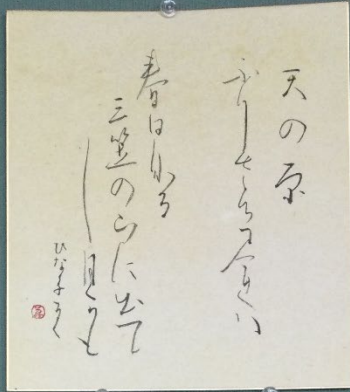 天の原
ふりさけみれハ
春日なる
三笠の山に出て
し月かも
ひな子かく